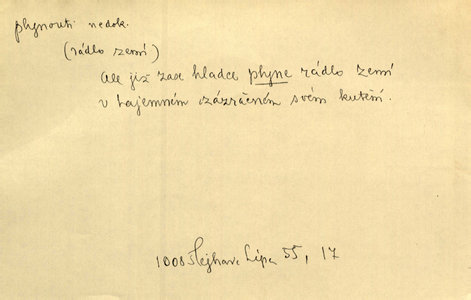 plynouti nedok.
(rádlo zemí)
Ale již zase hladce plyne rádlo zemí
v tajemném zázračném svém kutění.
1008 Šlejhar Lípa 55, 17